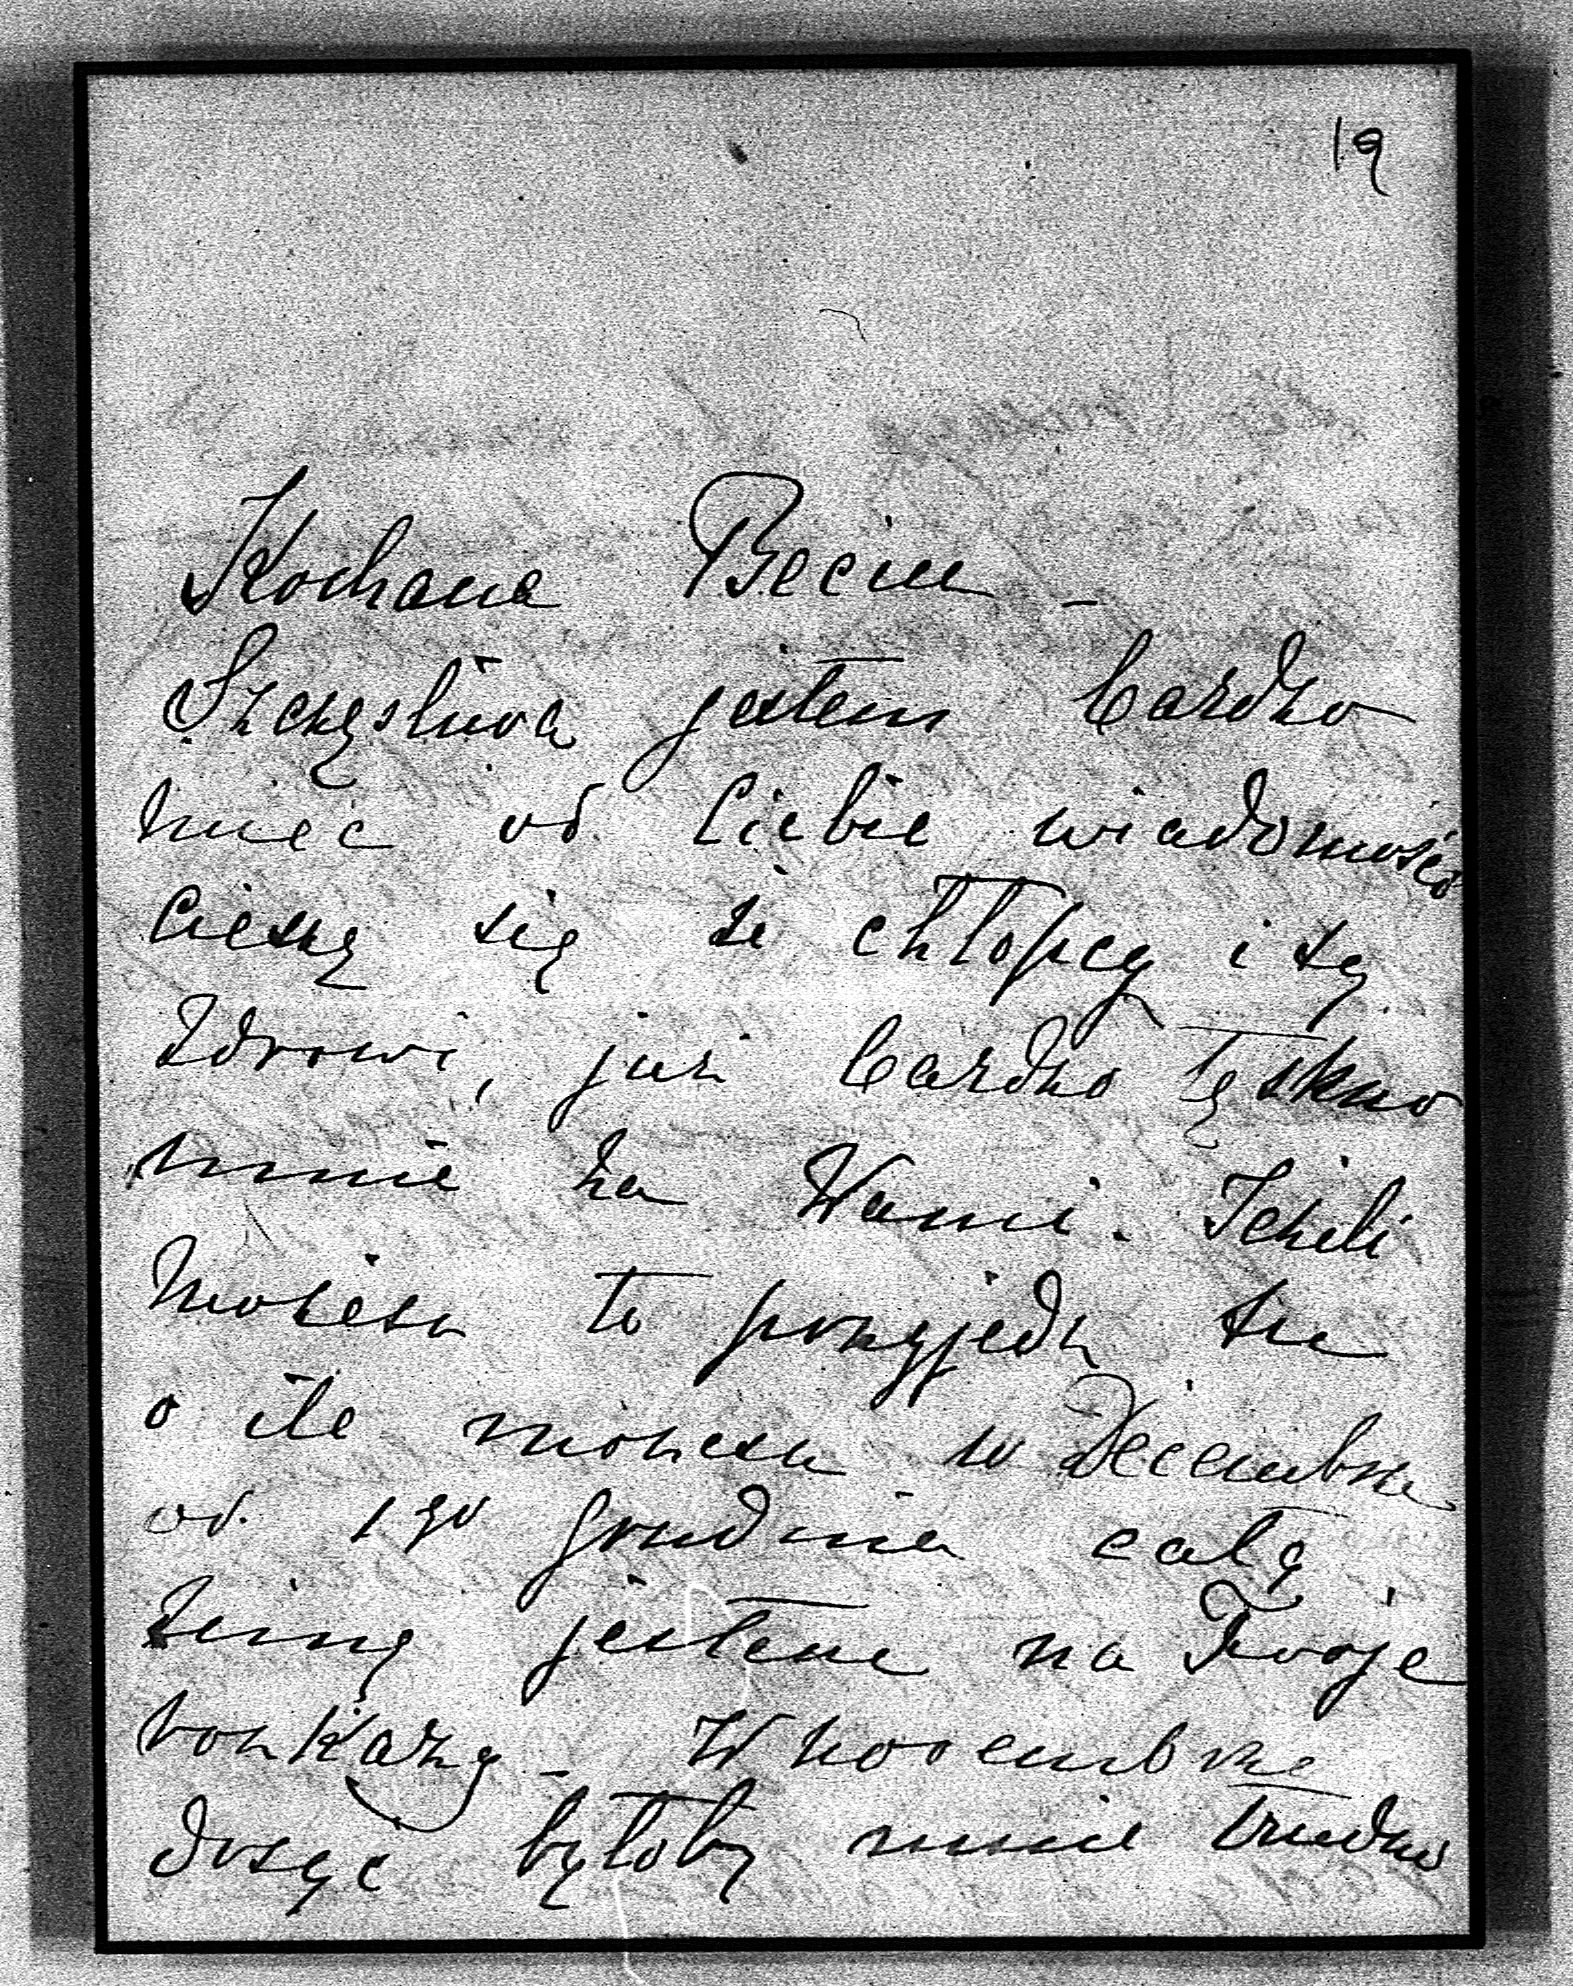 19
Kochana Beciu –
Szczęsliwa jestem bardzo
mieć od Ciebie wiadomość
Cieszę się że chłopcy i ty
zdrowi, już bardzo tęskno
mnie za Wami. Jeżeli
możesz to przyjedź tu
o ile możesz w Decembrze
od 1go grudnia całą
zimę jestem na Twoje
rozkazy – W novembrze
dosyć byłoby mnie trudno